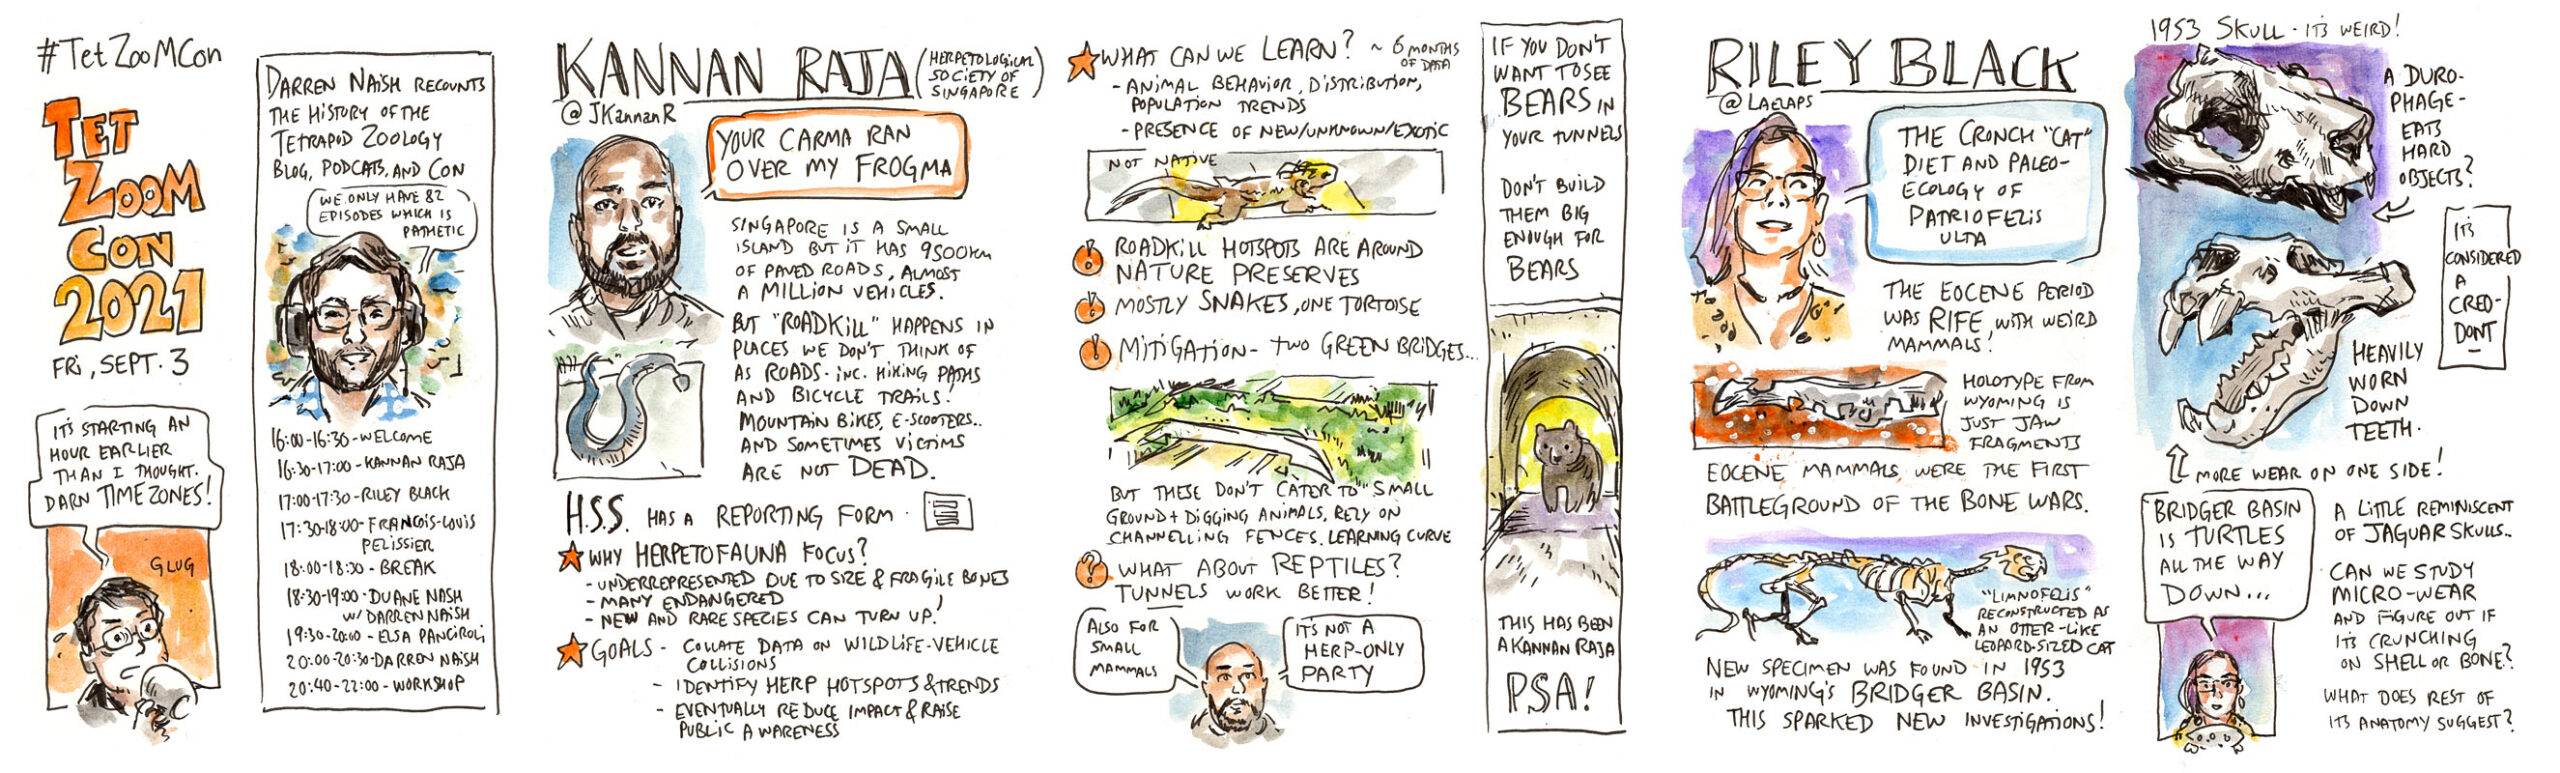 #TetZooMCon
TET
ZOOM
CON
2021
FRI, SEPT. 3
IT'S STARTING AN
HOUR EARLIER
THAN I THOUGHT.
DARN TIME ZONES!
GLUG
DARREN NAISH RECOUNTS
THE HISTORY OF THE
TETRAPOD ZOOLOGY
BLOG, PODCATS, AND CON
WE ONLY HAVE 82
EPISODES WHICH IS
PATHETIC
16:00-16:30-WELCOME
16:30-17:00-KANNAN RAJA
17:00-17:30-RILEY BLACK
17:30-18:00-FRANCOIS-LOUIS
PELISSIER
18:00-18:30-BREAK
18:30-19:00-DUANE NASH
W/ DARREN NAISH
19:30-20:00-ELSA PANCIROLI
20:00-20:30-DARREN NAISH
20:40-22:00-WORKSHOP
KANNAN RAJA (HERPETOLOGICAL
SOCIETY OF
SINGAPORE)
@JKannanR
YOUR CARMA RAN
OVER MY FROGMA
SINGAPORE IS A SMALL
ISLAND BUT IT HAS 9500km
OF PAVED ROADS, ALMOST
A MILLION VEHICLES.
BUT "ROADKILL" HAPPENS IN
PLACES WE DON'T THINK OF
AS ROADS. INC. HIKING PATHS
AND BICYCLE TRAILS!
MOUNTAIN BIKES, E-SCOOTERS..
AND SOMETIMES VICTIMS
ARE NOT DEAD.
H.S.S. HAS A REPORTING FORM.
WHY HERPETOFAUNA FOCUS?
- UNDERREPRESENTED DUE TO SIZE & FRAGILE BONES
- MANY ENDANGERED
- NEW AND RARE SPECIES CAN TURN UP!
GOALS - COLLATE DATA ON WILDLIFE-VEHICLE
COLLISIONS
- IDENTIFY HERP HOTSPOTS & TRENDS
- EVENTUALLY REDUCE IMPACT & RAISE
PUBLIC AWARENESS
WHAT CAN WE LEARN? ~ 6 MONTHS
OF DATA
- ANIMAL BEHAVIOR, DISTRIBUTION,
POPULATION TRENDS
- PRESENCE OF NEW/UNKNOWN/EXOTIC
NOT NATIVE
! ROADKILL HOTSPOTS ARE AROUND
NATURE PRESERVES
! MOSTLY SNAKES, ONE TORTOISE
! MITIGATION- TWO GREEN BRIDGES...
BUT THESE DON'T CATER TO SMALL
GROUND + DIGGING ANIMALS, RELY ON
CHANNELLING FENCES. LEARNING CURVE
? WHAT ABOUT REPTILES?
TUNNELS WORK BETTER!
ALSO FOR
SMALL
MAMMALS
IT'S NOT A
HERP-ONLY
PARTY
IF YOU DON'T
WANT TO SEE
BEARS IN
YOUR TUNNELS
DON'T BUILD
THEM BIG
ENOUGH FOR
BEARS
THIS HAS BEEN
A KANNAN RAJA
PSA!
RILEY BLACK
@LAELAPS
THE CRONCH "CAT"
DIET AND PALEO-
ECOLOGY OF
PATRIOFELIS
ULTA
THE EOCENE PERIOD
WAS RIFE, WITH WEIRD
MAMMALS!
HOLOTYPE FROM
WYOMING IS
JUST JAW
FRAGMENTS
EOCENE MAMMALS WERE THE FIRST
BATTLEGROUND OF THE BONE WARS.
"LIMNOFELIS"
RECONSTRUCTED AS
AN OTTER-LIKE
LEOPARD-SIZED CAT
NEW SPECIMEN WAS FOUND IN 1953
IN WYOMING'S BRIDGER BASIN.
THIS SPARKED NEW INVESTIGATIONS!
1953 SKULL - IT'S WEIRD!
A DURO-
PHAGE-
EATS
HARD
OBJECTS?
IT'S
CONSIDERED
A
CREO-
DONT
HEAVILY
WORN
DOWN
TEETH.
MORE WEAR ON ONE SIDE!
BRIDGER BASIN
IS TURTLES
ALL THE WAY
DOWN...
A LITTLE REMINISCENT
OF JAGUAR SKULLS..
CAN WE STUDY
MICRO-WEAR
AND FIGURE OUT IF
IT'S CRUNCHING
ON SHELL OR BONE?
WHAT DOES REST OF
ITS ANATOMY SUGGEST?